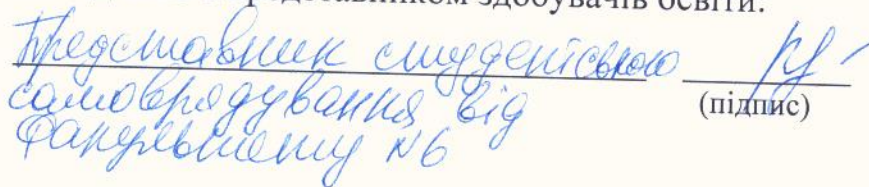 представником здобувачів освіти.
Представник студентського
(підпис)
самоврядування від
Факультету №6